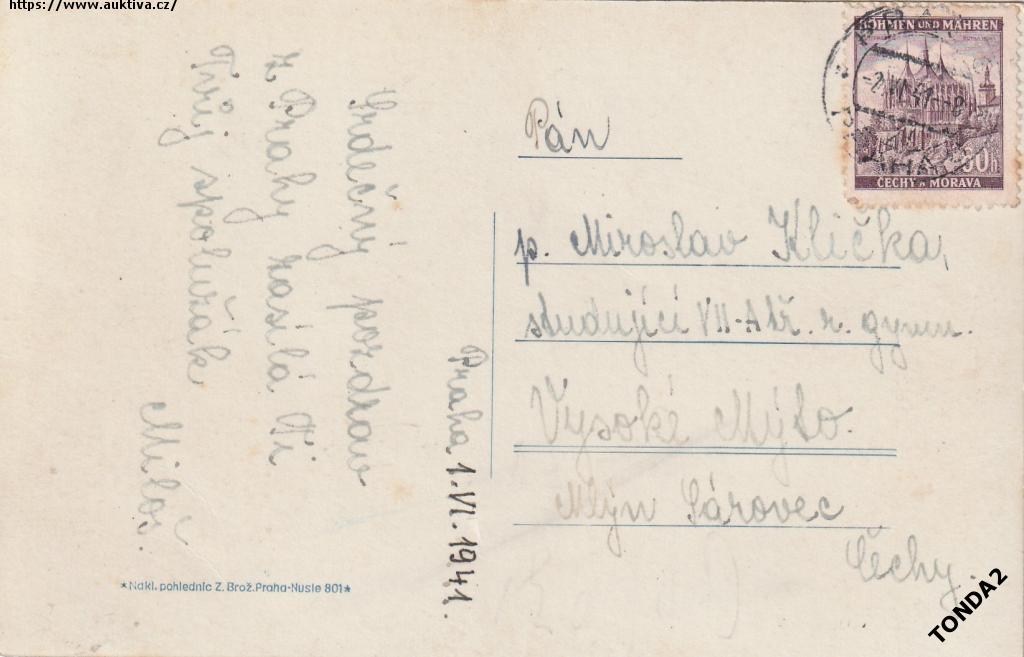 https://www.auktiva.cz/
Srdečný pozdrav
z Prahy zasílá Ti
Tvůj spolužák
Miloš.
Praha 1. VI. 1941.
*Nakl. pohlednic Z. Brož. Praha-Nusle 801*
BÖHMEN UND MÄHREN
ČECHY A MORAVA
Pán
p. Miroslav Klička,
studující VII-A tř. r. gymn.
Vysoké Mýto.
Mlýn Šárovec
Čechy.
TONDA2